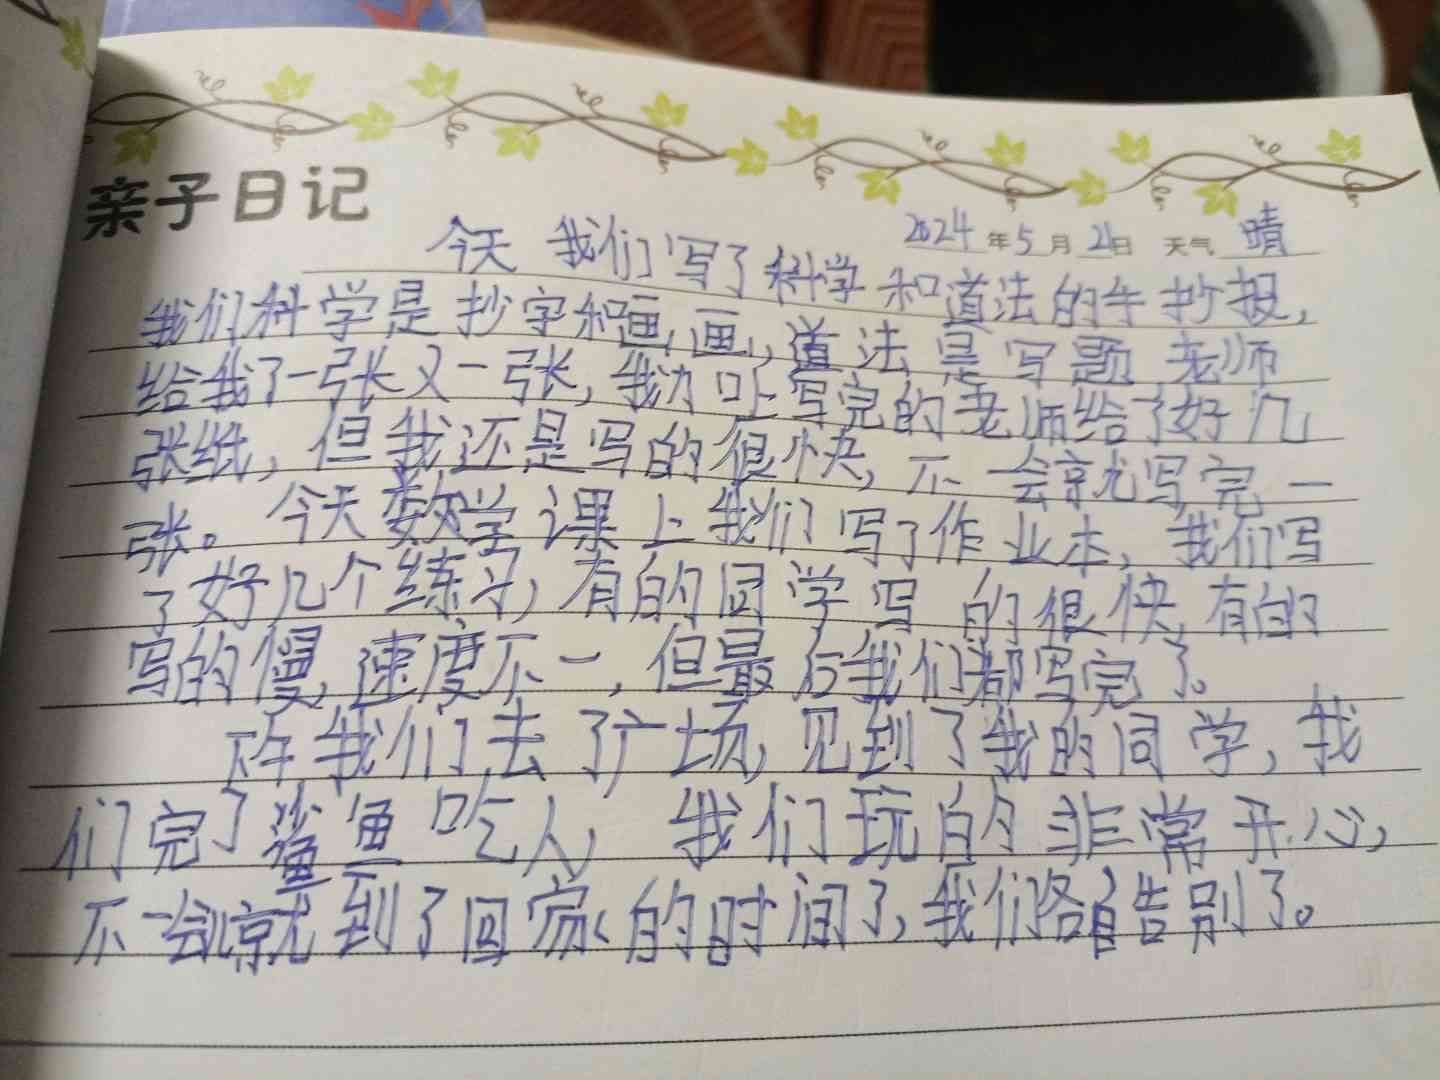 亲子日记
2024年5月21日 天气 晴
今天我们写了科学和道法的手抄报,
我们科学是抄字和画画,道法是写题老师
给我了一张又一张,我才写完的老师给了好几
张纸,但我还是写的很快,不一会就写完一
张。今天数学课上我们写了作业本,我们写
了好几个练习,有的同学写的很快,有的
写的慢,速度不一,但最后我们都写完了。
我们去了广场,见到了我的同学,我
们完了鲨鱼吃人,我们玩的非常开心,
不一会就到了回家的时间了,我们各自告别了。